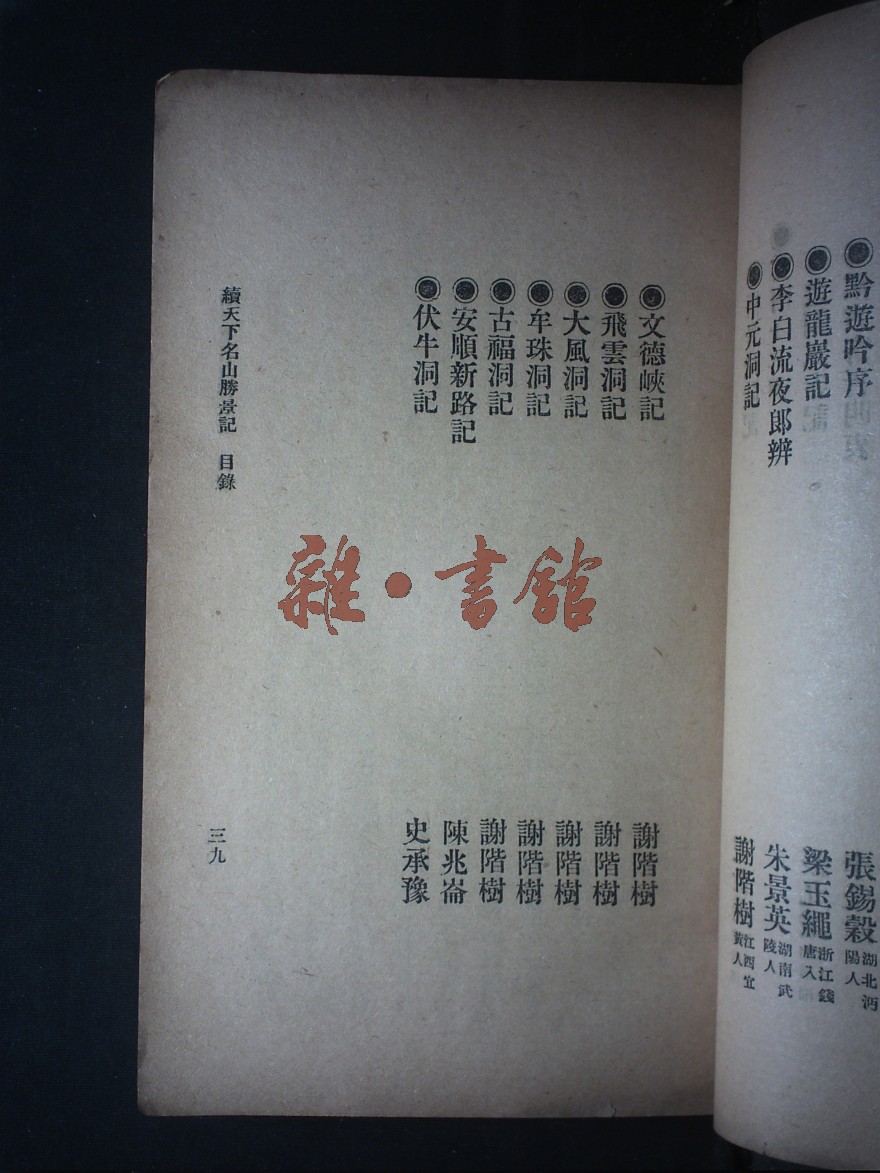 ●黔遊吟序
張錫穀 湖北沔陽人
●遊龍巖記
梁玉繩 浙江錢唐人
●李白流夜郎辨
朱景英 湖南武陵人
●中元洞記
謝階樹 江西宜黃人
●文德峽記 謝階樹
●飛雲洞記 謝階樹
●大風洞記 謝階樹
●牟珠洞記 謝階樹
●古福洞記 謝階樹
●安順新路記 陳兆崙
●伏牛洞記 史承豫
續天下名山勝景記 目錄 三九
雜•書館